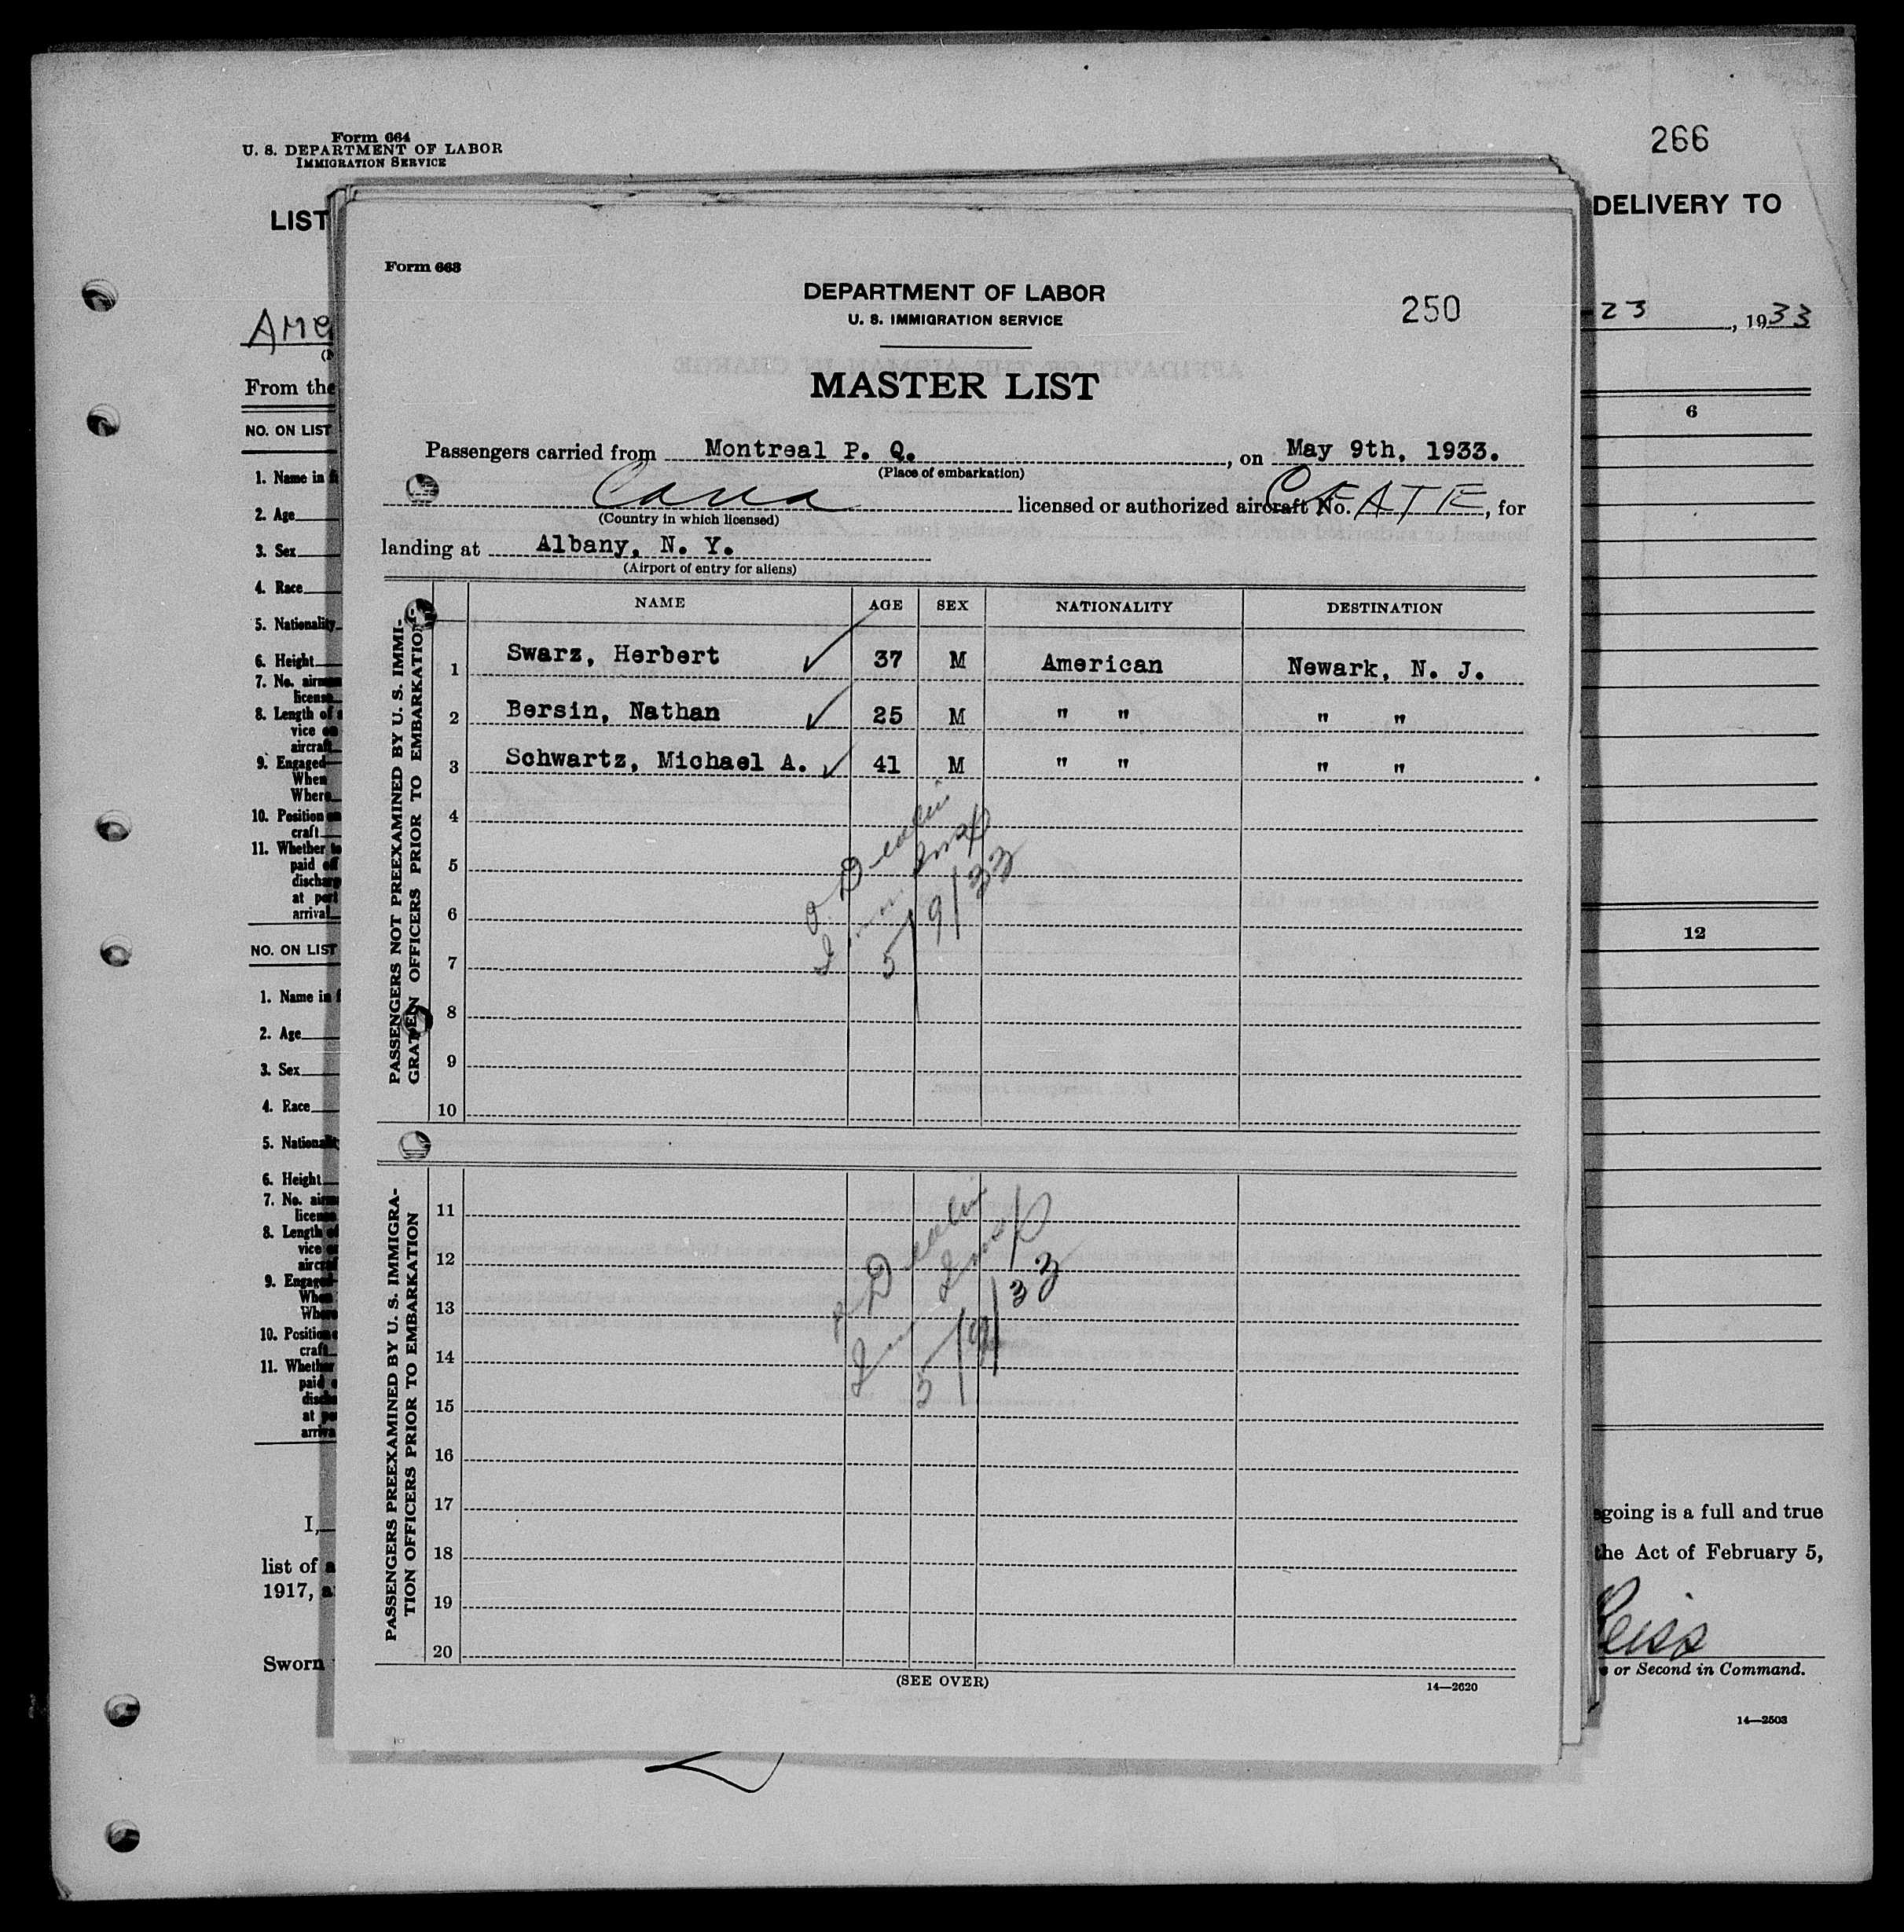 Form 664
U. S. DEPARTMENT OF LABOR
IMMIGRATION SERVICE
266
LIST
DELIVERY TO
23, 1933
From the
6
NO. ON LIST
1. Name in
2. Age
3. Sex
4. Race
5. Nationality
6. Height
7. No.
license
8. Length of
vice
aircraft
9. Engaged
When
Where
10. Position
craft
11. Whether
paid
at
arrival
12
NO. ON LIST
1. Name in
2. Age
3. Sex
4. Race
5.
6. Height
7. No.
8. Length
vice
9.
10.
craft
11. Whether
paid
at
I,
list of
1917,
Sworn
going is a full and true
the Act of February 5,
or Second in Command.
14—2503
Form 663
DEPARTMENT OF LABOR
U. S. IMMIGRATION SERVICE
250
MASTER LIST
Passengers carried from Montreal P. Q., on May 9th, 1933.
(Place of embarkation)
Cana licensed or authorized aircraft No. CFATE, for
(Country in which licensed)
landing at Albany, N. Y.
(Airport of entry for aliens)
NAME AGE SEX NATIONALITY DESTINATION
PASSENGERS NOT PREEXAMINED BY U. S. IMMI-
GRATION OFFICERS PRIOR TO EMBARKATION
1 Swarz, Herbert ✓ 37 M American Newark, N. J.
2 Bersin, Nathan ✓ 25 M " " " "
3 Schwartz, Michael A. ✓ 41 M " " " "
4
5
6
7
8
9
10
5/9/33
PASSENGERS PREEXAMINED BY U. S. IMMIGRA-
TION OFFICERS PRIOR TO EMBARKATION
11
12
13
14
15
16
17
18
19
20
5/9/33
(SEE OVER)
14—2620